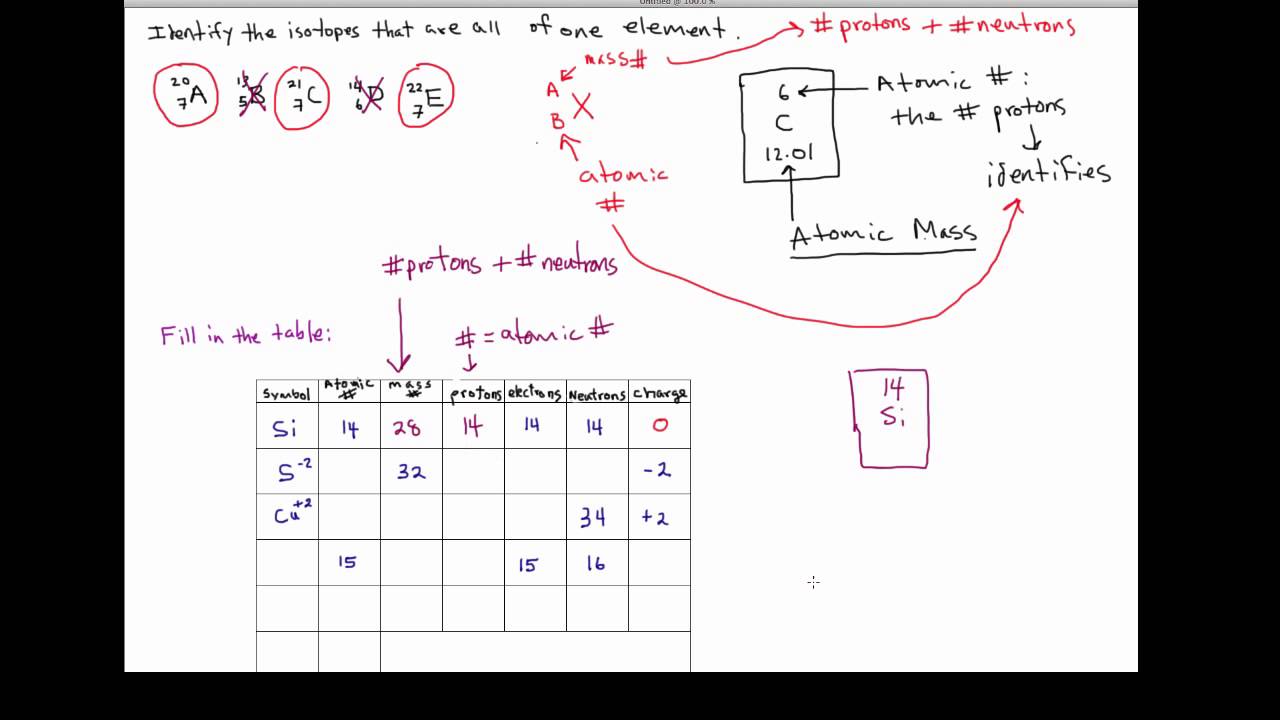 Untitled @ 100.0 %
Identify the isotopes that are all of one element.
#protons + #neutrons
mass#
20 7 A 13 5 B 21 7 C 14 6 D 22 7 E
A
B X
atomic
#
6
C
12.01
Atomic #:
the # protons
identifies
Atomic Mass
#protons + #neutrons
Fill in the table:
# = atomic #
Symbol Atomic # mass # protons electrons Neutrons charge
Si 14 28 14 14 14 0
S-2 32 -2
Cu+2 34 +2
15 15 16
14
Si